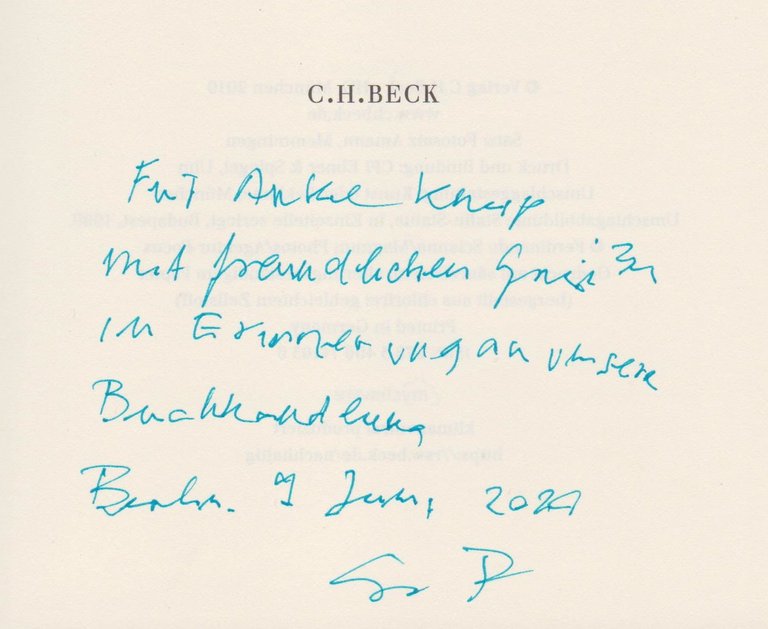 C.H.BECK
Für Anke Knap
mit freundlichen Grüßen
in Erinnerung an unsere
Buchhandlung
Berlin. 9 Juni, 2021